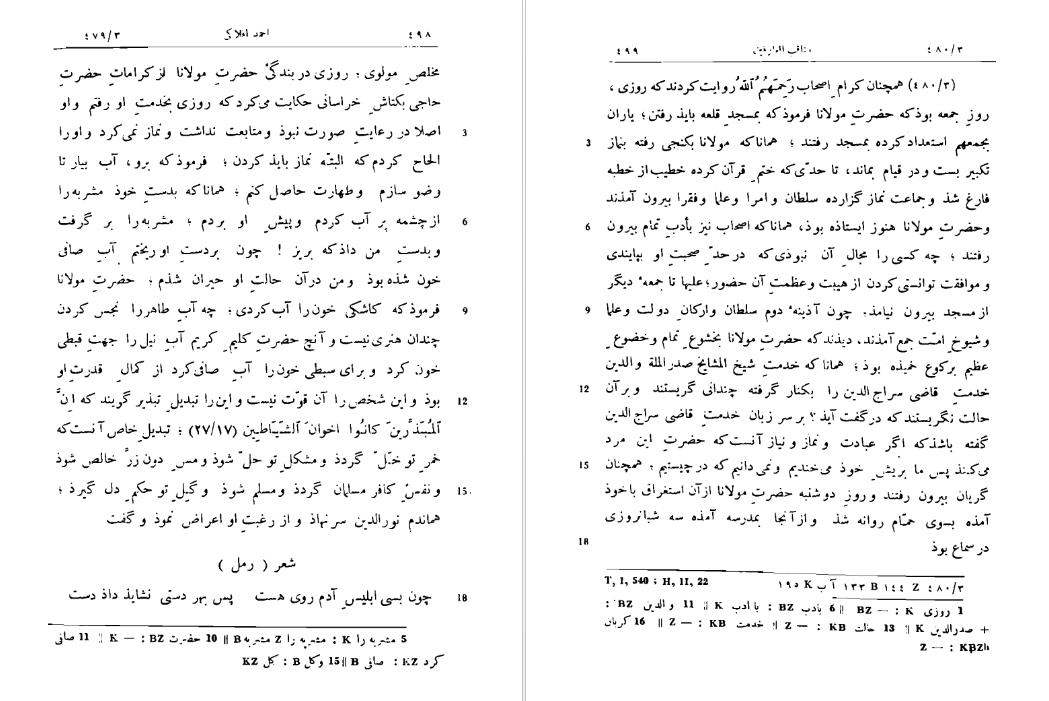 ٤٩٨ احمد افلاکی ٤٧٩/٣
مخلصِ مولوی، روزی در بندگیٔ حضرتِ مولانا از کراماتِ حضرتِ
حاجی بکتاشِ خراسانی حکایت می‌کرد که روزی بخدمتِ او رفتم و او
اصلا در رعایتِ صورت نبوذ و متابعت نداشت و نماز نمی‌کرد و او را 3
الحاح کردم که البتّه نماز بایذ کردن؛ فرموذ که برو، آب بیار تا
وضو سازم و طهارت حاصل کنم؛ همانا که بدستِ خوذ مشربه را
از چشمه پر آب کردم و پیشِ او بردم؛ مشربه را بر گرفت 6
و بدستِ من داذ که بریز! چون بر دستِ او ریختم آبِ صافی
خون شذه بوذ و من در آن حالتِ او حیران شذم؛ حضرتِ مولانا
فرموذ که کاشکی خون را آب کردی؛ چه آبِ طاهر را نجس کردن 9
چندان هنری نیست و آنچ حضرتِ کلیمِ کریم آبِ نیل را جهتِ قبطی
خون کرد و برای سبطی خون را آبِ صافی کرد از کمالِ قدرتِ او
بوذ و این شخص را آن قوّت نیست و این را تبدیلِ تبذیر گویند که اِنَّ 12
ٱلمُبَذِّرِینَ کانُوا اخوانَ ٱلشّیَاطِینِ (٢٧/١٧)؛ تبدیلِ خاص آنست که
خمرِ تو خلّ گردذ و مشکلِ تو حلّ شوذ و مسِ دون زرِّ خالص شوذ
و نفسِ کافر مسلمان گردذ و مسلم شوذ و گِلِ تو حکمِ دل گیرذ؛ 15
هماندم نورالدین سر نهاذ و از رغبتِ او اعراض نموذ و گفت
شعر ( رمل )
چون بسی ابلیسِ آدم روی هست پس بهر دستی نشایذ داذ دست 18
5 مشربه را K : مشربه را Z مشربه B || 10 حضرت BZ : — K || 11 صافی
کرد KZ : صافی B || 15 وکل B : کل KZ
٤٨٠/٣ مناقب العارفین ٤٩٩
(٤٨٠/٣) همچنان کرامِ اصحاب رَحِمَهُمُ ٱللّٰهُ روایت کردند که روزی،
روزِ جمعه بوذ که حضرتِ مولانا فرموذ که بمسجدِ قلعه بایذ رفتن؛ یاران
بجمعهم استعداد کرده بمسجد رفتند؛ همانا که مولانا بکنجی رفته بنماز 3
تکبیر بست و در قیام بماند، تا حدّی که ختمِ قرآن کرده خطیب از خطبه
فارغ شذ و جماعت نماز گزارده سلطان و امرا و علما و فقرا بیرون آمذند
و حضرتِ مولانا هنوز ایستاذه بوذ، همانا که اصحاب نیز بأدبِ تمام بیرون 6
رفتند؛ چه کسی را مجالِ آن نبوذی که در حدِّ صحبتِ او بپایندی
و موافقت توانستی کردن از هیبت و عظمتِ آن حضور؛ علیها تا جمعهٔ دیگر
از مسجد بیرون نیامذ. چون آذینهٔ دوم سلطان وارکانِ دولت و علما 9
و شیوخِ امّت جمع آمذند، دیذند که حضرتِ مولانا بخشوعِ تمام و خضوعِ
عظیم برکوع خمیذه بوذ؛ همانا که خدمتِ شیخ المشایخ صدر الملة والدین
خدمتِ قاضی سراج الدین را بکنار گرفته چندانی گریستند و بر آن 12
حالت نگریستند که در گفت آیذ؟ بر سر زبان خدمتِ قاضی سراج الدین
گفته باشذ که اگر عبادت و نماز و نیاز آنست که حضرتِ این مرد
می‌کنذ پس ما بریشِ خوذ می‌خندیم و نمی‌دانیم که در چیستیم؛ همچنان 15
گریان بیرون رفتند و روزِ دوشنبه حضرتِ مولانا از آن استغراق باخوذ
آمذه بسوی حمّام روانه شذ و از آنجا بمدرسه آمذه سه شبانروزی
در سماع بوذ 18
٤٨٠/٣ Z ١٤٤ B ١٣٣ آ K ١٩٥ T, I, 540 ; H, II, 22
1 روزی K : — BZ || 6 بادب BZ : با ادب K || 11 و الدین BZ :
+ صدرالدین K || 13 حالت KB : — Z || خدمت KB : — Z || 16 گریان